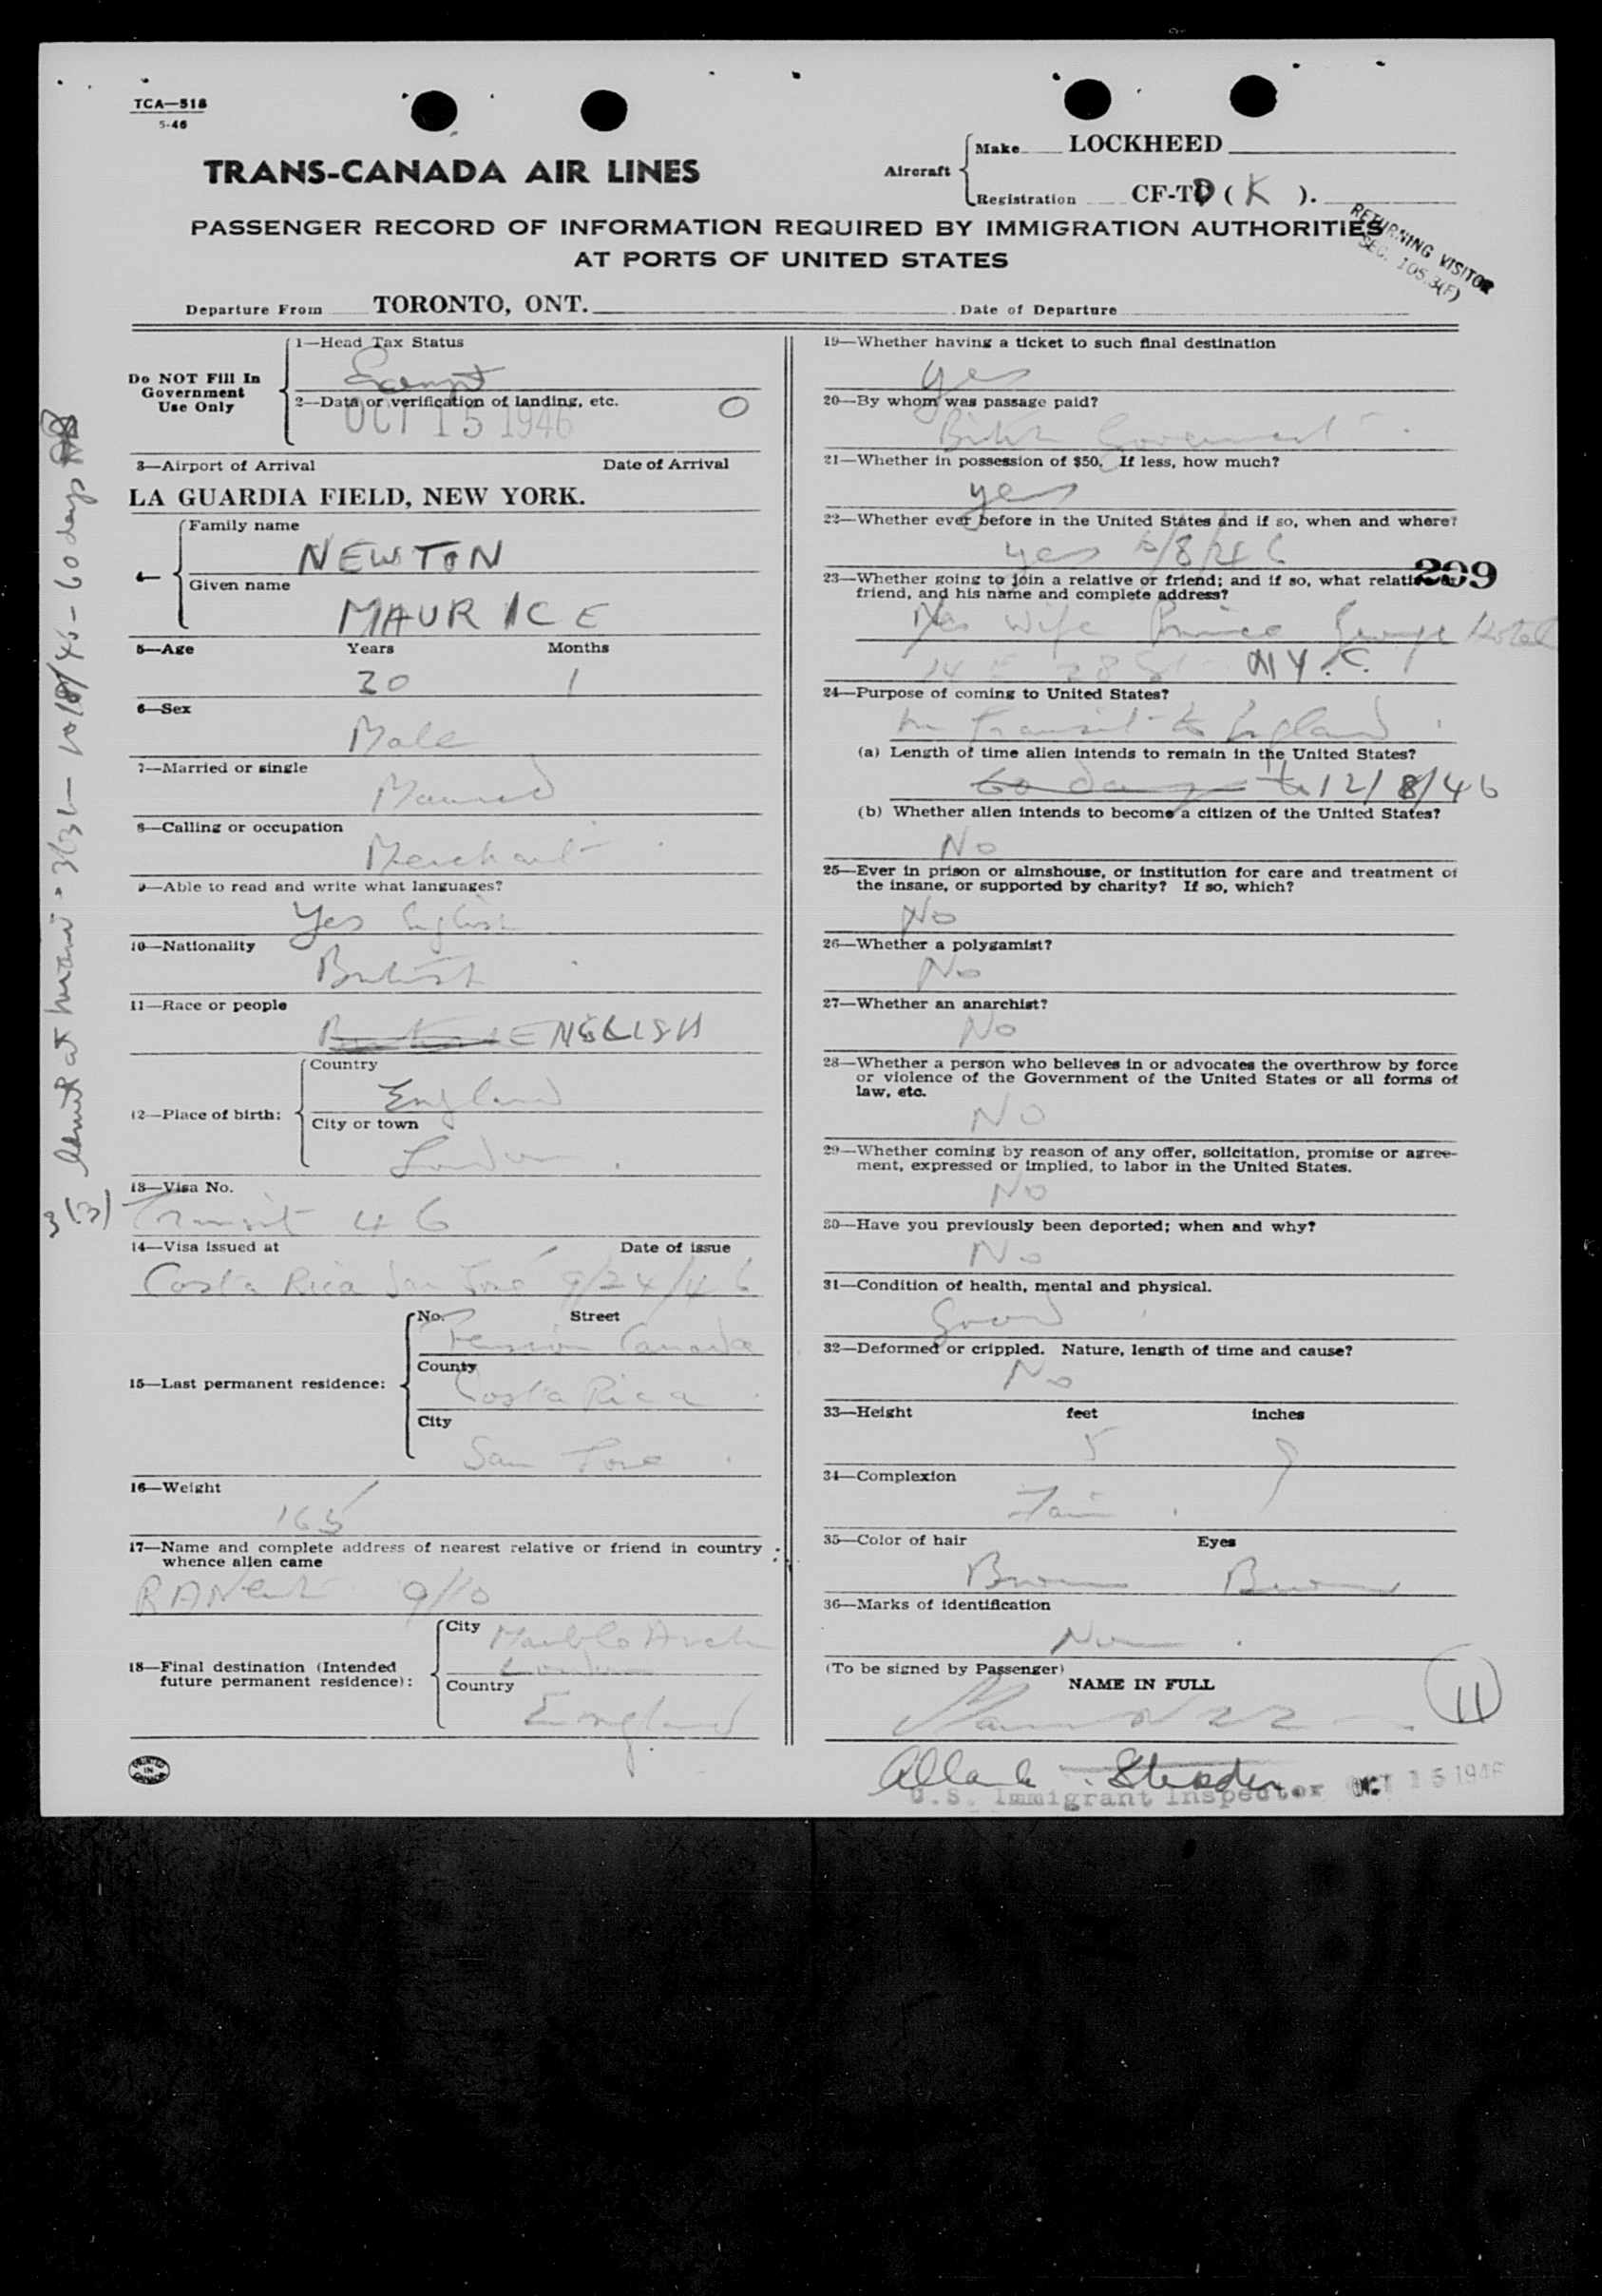 TCA—518
5-46
TRANS-CANADA AIR LINES
Aircraft
Make LOCKHEED
Registration CF-TD ( K ).
PASSENGER RECORD OF INFORMATION REQUIRED BY IMMIGRATION AUTHORITIES
AT PORTS OF UNITED STATES
RETURNING VISITOR
SEC. 105.3(F)
Departure From TORONTO, ONT. Date of Departure
Do NOT Fill In
Government
Use Only
1—Head Tax Status
Exempt
2—Data or verification of landing, etc.
OCT 15 1946
0
3—Airport of Arrival Date of Arrival
LA GUARDIA FIELD, NEW YORK.
4—
Family name
NEWTON
Given name
MAURICE
5—Age Years Months
30 1
6—Sex
Male
7—Married or single
Married
8—Calling or occupation
Merchant
9—Able to read and write what languages?
Yes English
10—Nationality
British
11—Race or people
British ENGLISH
12—Place of birth:
Country
England
City or town
London
13—Visa No.
Transit 46
14—Visa issued at Date of issue
Costa Rica San José 9/24/46
15—Last permanent residence:
No. Street
Pension Canada
County
Costa Rica
City
San Jose
16—Weight
165
17—Name and complete address of nearest relative or friend in country
whence alien came
9/10
18—Final destination (Intended
future permanent residence):
City
Marble Arch
London
Country
England
19—Whether having a ticket to such final destination
yes
20—By whom was passage paid?
British Government
21—Whether in possession of $50. If less, how much?
yes
22—Whether ever before in the United States and if so, when and where?
yes /8/46
299
23—Whether going to join a relative or friend; and if so, what relative or
friend, and his name and complete address?
Yes Wife Prince George Hotel
14 E 28 St N Y. C.
24—Purpose of coming to United States?
In Transit to England
(a) Length of time alien intends to remain in the United States?
60 days to 12/8/46
(b) Whether alien intends to become a citizen of the United States?
No
25—Ever in prison or almshouse, or institution for care and treatment of
the insane, or supported by charity? If so, which?
No
26—Whether a polygamist?
No
27—Whether an anarchist?
No
28—Whether a person who believes in or advocates the overthrow by force
or violence of the Government of the United States or all forms of
law, etc.
NO
29—Whether coming by reason of any offer, solicitation, promise or agree-
ment, expressed or implied, to labor in the United States.
No
30—Have you previously been deported; when and why?
No
31—Condition of health, mental and physical.
Good
32—Deformed or crippled. Nature, length of time and cause?
No
33—Height feet inches
5 9
34—Complexion
Fair
35—Color of hair Eyes
Brown Brown
36—Marks of identification
(To be signed by Passenger)
NAME IN FULL
11
U.S. Immigrant Inspector OCT 15 1946
3(3) at Miami - 3(3)- 10/8/46 - 60 days